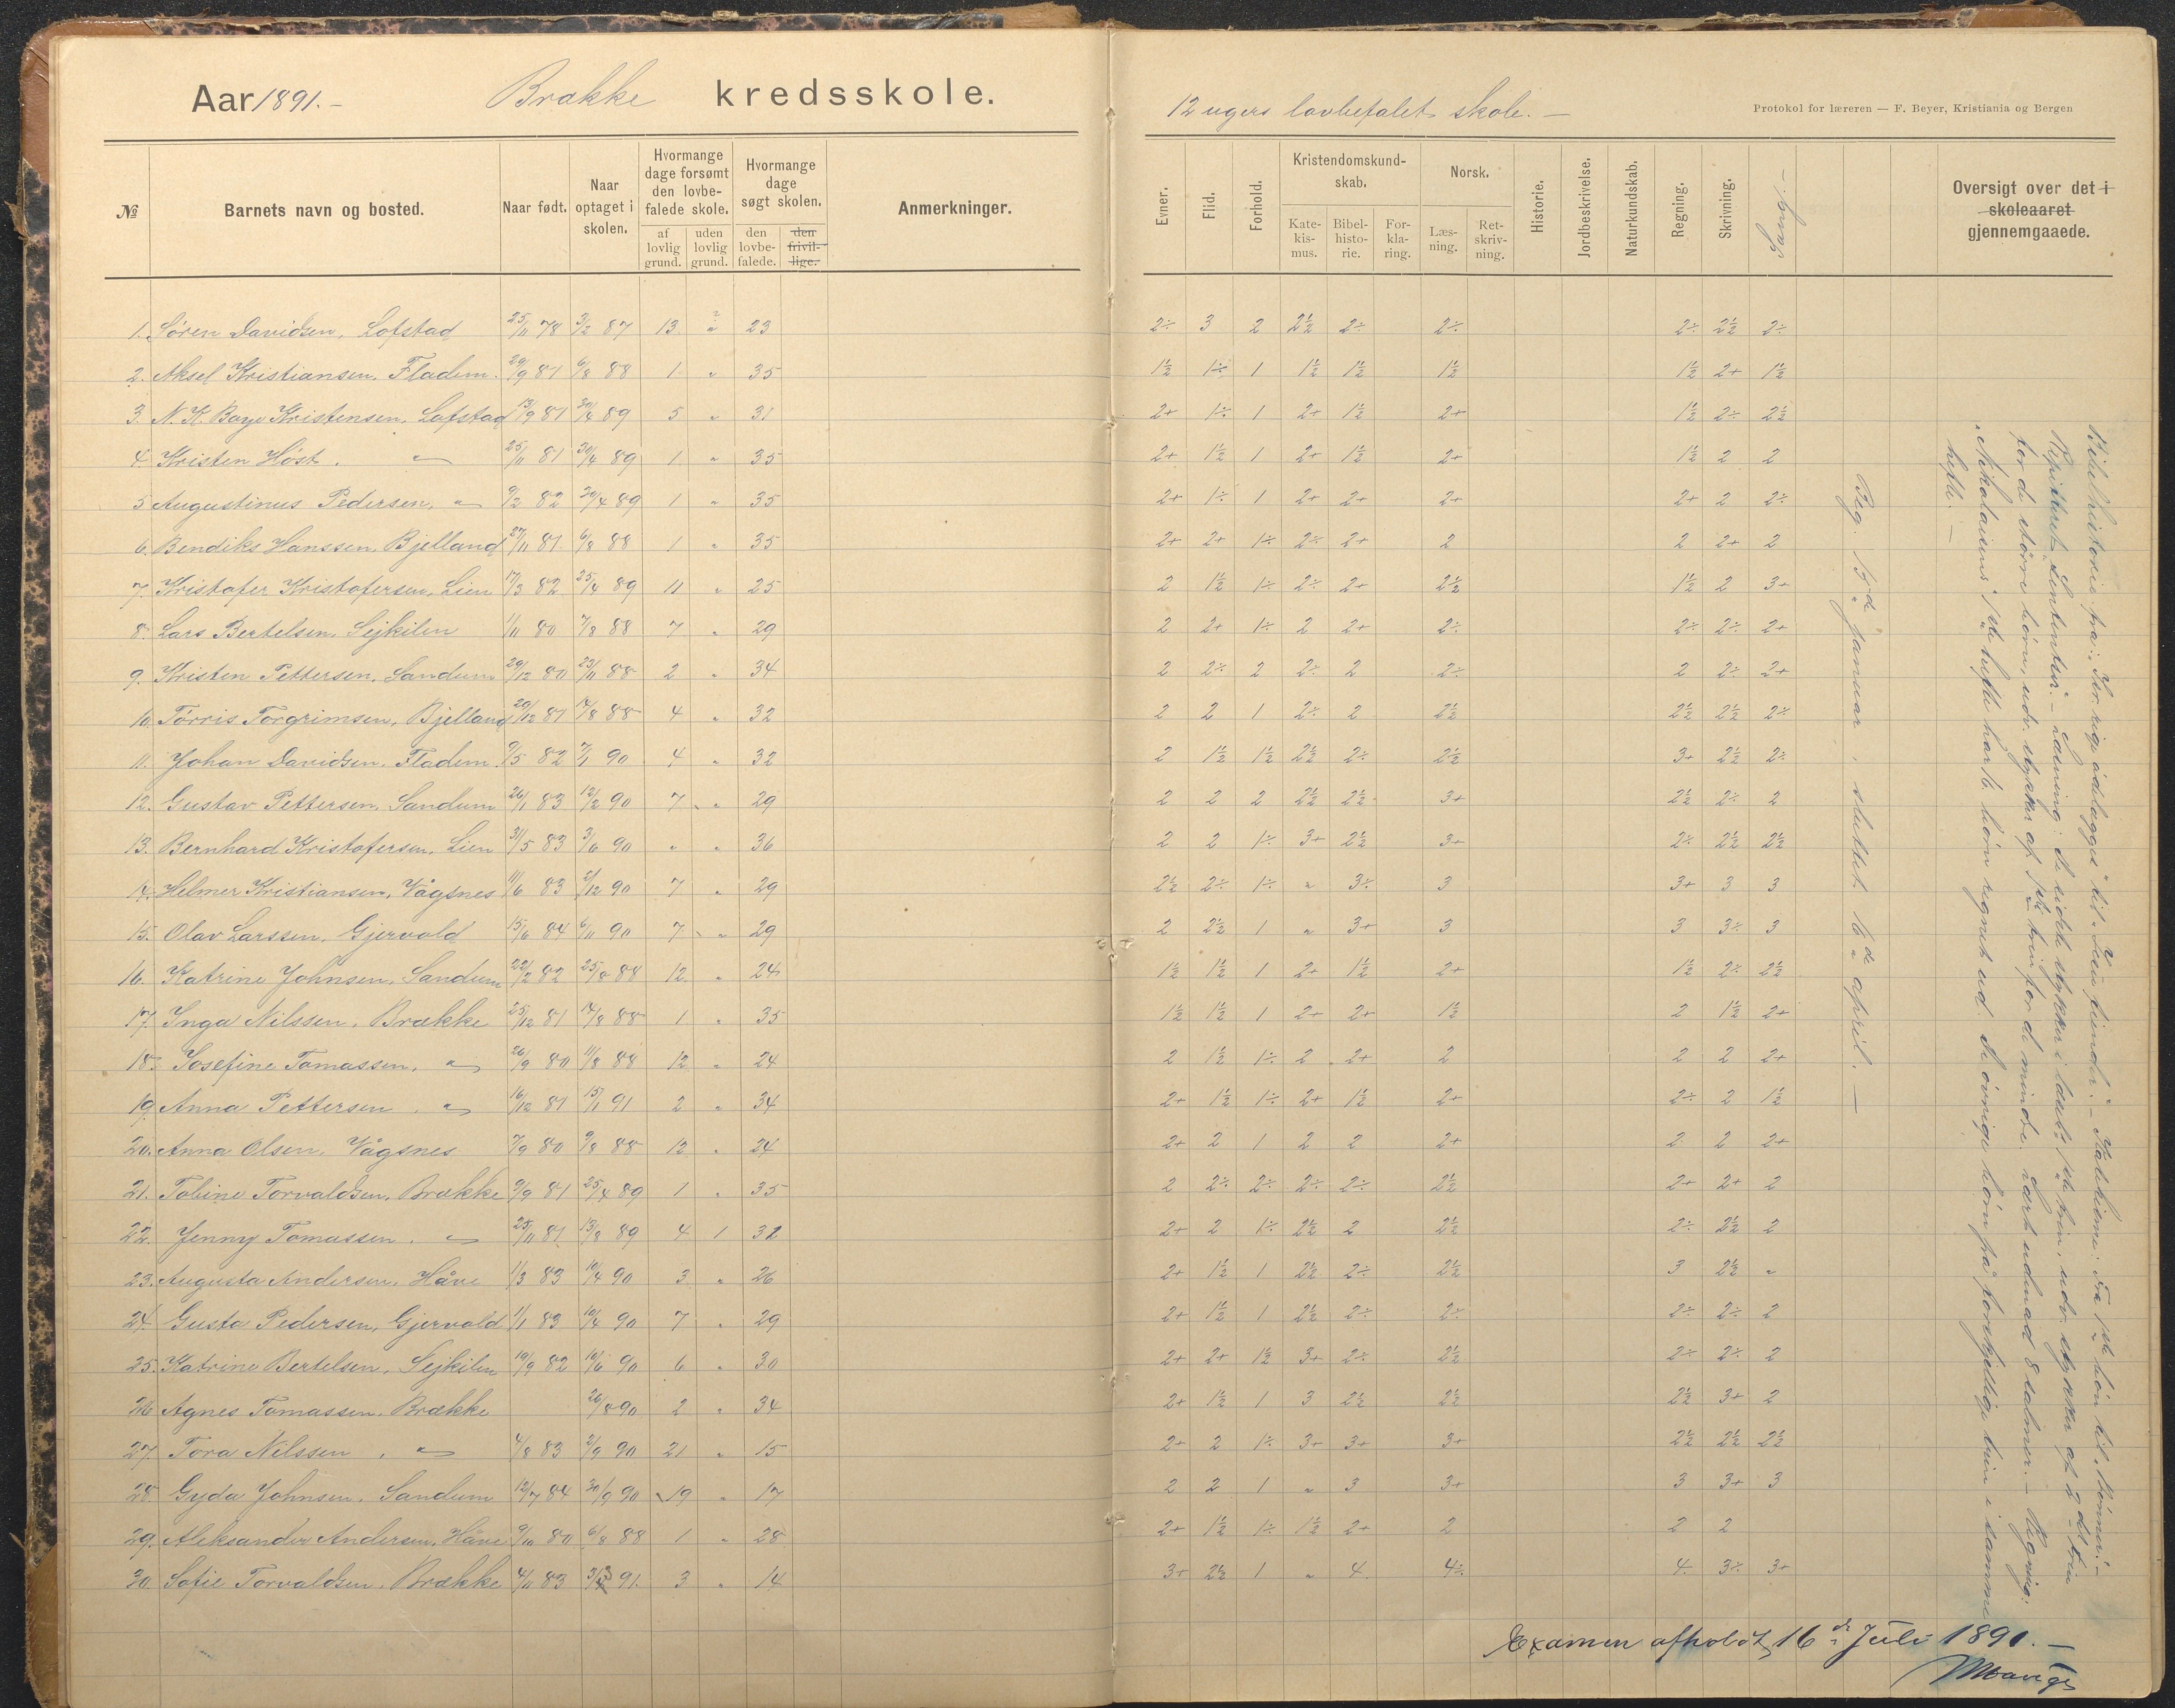 Aar 1891.- Brække kredsskole.
12 ugers lovbefalet skole. —
Protokol for læreren — F. Beyer, Kristiania og Bergen
№ Barnets navn og bosted. Naar født. Naar optaget i skolen. Hvormange dage forsømt den lovbefalede skole. af lovlig grund. uden lovlig grund. Hvormange dage søgt skolen. den lovbefalede. den frivillige. Anmerkninger.
Evner. Flid. Forhold. Kristendomskundskab. Katekismus. Bibelhistorie. Forklaring. Norsk. Læsning. Retskrivning. Historie. Jordbeskrivelse. Naturkundskab. Regning. Skrivning. Sang. Oversigt over det i skoleaaret gjennemgaaede.
1. Søren Davidsen, Lofstad 25/11 78 3/2 87 13 " 23 2÷ 3 2 2½ 2÷ 2÷ 2÷ 2½ 2÷
2. Aksel Kristiansen, Fladem. 29/9 81 6/8 88 1 " 35 1½ 1÷ 1 1½ 1½ 1½ 1½ 2+ 1½
3. N. K. Boye Kristensen, Lofstad 13/9 81 30/4 89 5 " 31 2+ 1÷ 1 2+ 1½ 2+ 1½ 2÷ 2½
4. Kristen Høst. " 25/11 81 30/4 89 1 " 35 2+ 1½ 1 2+ 1½ 2+ 1½ 2 2
5. Augustinus Pedersen, " 9/2 82 30/4 89 1 " 35 2+ 1÷ 1 2+ 2+ 2+ 2+ 2 2÷
6. Bendiks Hanssen, Bjelland 27/11 81 6/8 88 1 " 35 2+ 2+ 1÷ 2÷ 2+ 2 2 2+ 2
7. Kristofer Kristofersen, Lien 17/3 82 25/4 89 11 " 25 2 1½ 1÷ 2÷ 2+ 2½ 1½ 2 3+
8. Lars Bertelsen, Sejkilen 1/11 80 7/8 88 7 " 29 2 2+ 1÷ 2 2+ 2÷ 2÷ 2÷ 2+
9. Kristen Pettersen, Sandum 29/12 80 23/11 88 2 " 34 2 2÷ 2 2÷ 2 2÷ 2 2÷ 2+
10. Tørris Torgrimsen, Bjelland 20/12 81 14/8 88 4 " 32 2 2 1 2÷ 2 2½ 2½ 2½ 2÷
11. Johan Davidsen, Fladem. 9/5 82 7/1 90 4 " 32 2 1½ 1½ 2½ 2÷ 2½ 3+ 2½ 2÷
12. Gustav Pettersen, Sandum 26/1 83 12/2 90 7 " 29 2 2 2 2½ 2½ 3+ 2½ 2÷ 2
13. Bernhard Kristofersen, Lien 31/5 83 3/6 90 " " 36 2 2 1÷ 3+ 2½ 3+ 2÷ 2½ 2½
14. Helmer Kristiansen, Vågsnes 11/6 83 2/12 90 7 " 29 2½ 2÷ 1÷ " 3÷ 3 3+ 3 3
15. Olav Larssen, Gjervold 15/6 84 6/11 90 7 " 29 2 2½ 1 " 3+ 3 3 3÷ 3
16. Katrine Johnsen, Sandum 22/2 82 25/8 88 12 " 24 1½ 1½ 1 2+ 1½ 2+ 1½ 2÷ 2½
17. Inga Nilssen, Brække 25/12 81 14/8 88 1 " 35 1½ 1½ 1 2+ 2+ 1½ 2 1½ 2+
18. Josefine Tomassen, " 26/9 80 11/8 88 12 " 24 2 1½ 1÷ 2 2+ 2 2 2 2+
19. Anna Pettersen, " 16/12 81 15/1 91 2 " 34 2+ 1½ 1÷ 2+ 1½ 2+ 2÷ 2 1½
20. Anna Olsen, Vågsnes 7/9 80 9/8 88 12 " 24 2+ 2 1 2 2 2+ 2 2 2+
21. Tobine Torvaldsen, Brække 9/9 81 25/4 89 1 " 35 2 2÷ 2÷ 2÷ 2÷ 2½ 2+ 2+ 2
22. Jenny Tomassen, " 25/11 81 13/8 89 4 1 32 2+ 2 1÷ 2½ 2 2½ 2÷ 2½ 2
23. Augusta Andersen, Håve 1/3 83 10/4 90 3 " 26 2+ 1½ 1 2½ 2÷ 2½ 3 2½ "
24. Gusta Pedersen, Gjervold 1/1 83 10/4 90 7 " 29 2+ 1½ 1 2½ 2÷ 2÷ 2÷ 2÷ 2
25. Katrine Bertelsen, Sejkilen 19/9 82 10/6 90 6 " 30 2+ 2+ 1½ 3+ 2÷ 2½ 2÷ 2÷ 2
26. Agnes Tomassen, Brække 26/8 90 2 " 34 2+ 1½ 1 3 2½ 2½ 2½ 3+ 2
27. Tora Nilssen, " 4/8 83 2/9 90 21 " 15 2+ 2 1÷ 3+ 3+ 3+ 2½ 2½ 2½
28. Gyda Johnsen, Sandum 12/7 84 30/9 90 19 " 17 2 2 1 " 3 3+ 3 3+ 3
29. Aleksander Andersen, Håve 9/10 80 6/8 88 1 " 28 2+ 1½ 1÷ 1½ 2+ 2 2 2
30. Sofie Torvaldsen, Brække 4/11 83 3/3 91. 3 " 14 3+ 2½ 1 " 4 4÷ 4 3÷ 3+
Beg. 15de januar, sluttet 16de april. —
hefte. —
Examen afholdt 16de Juli 1891. —